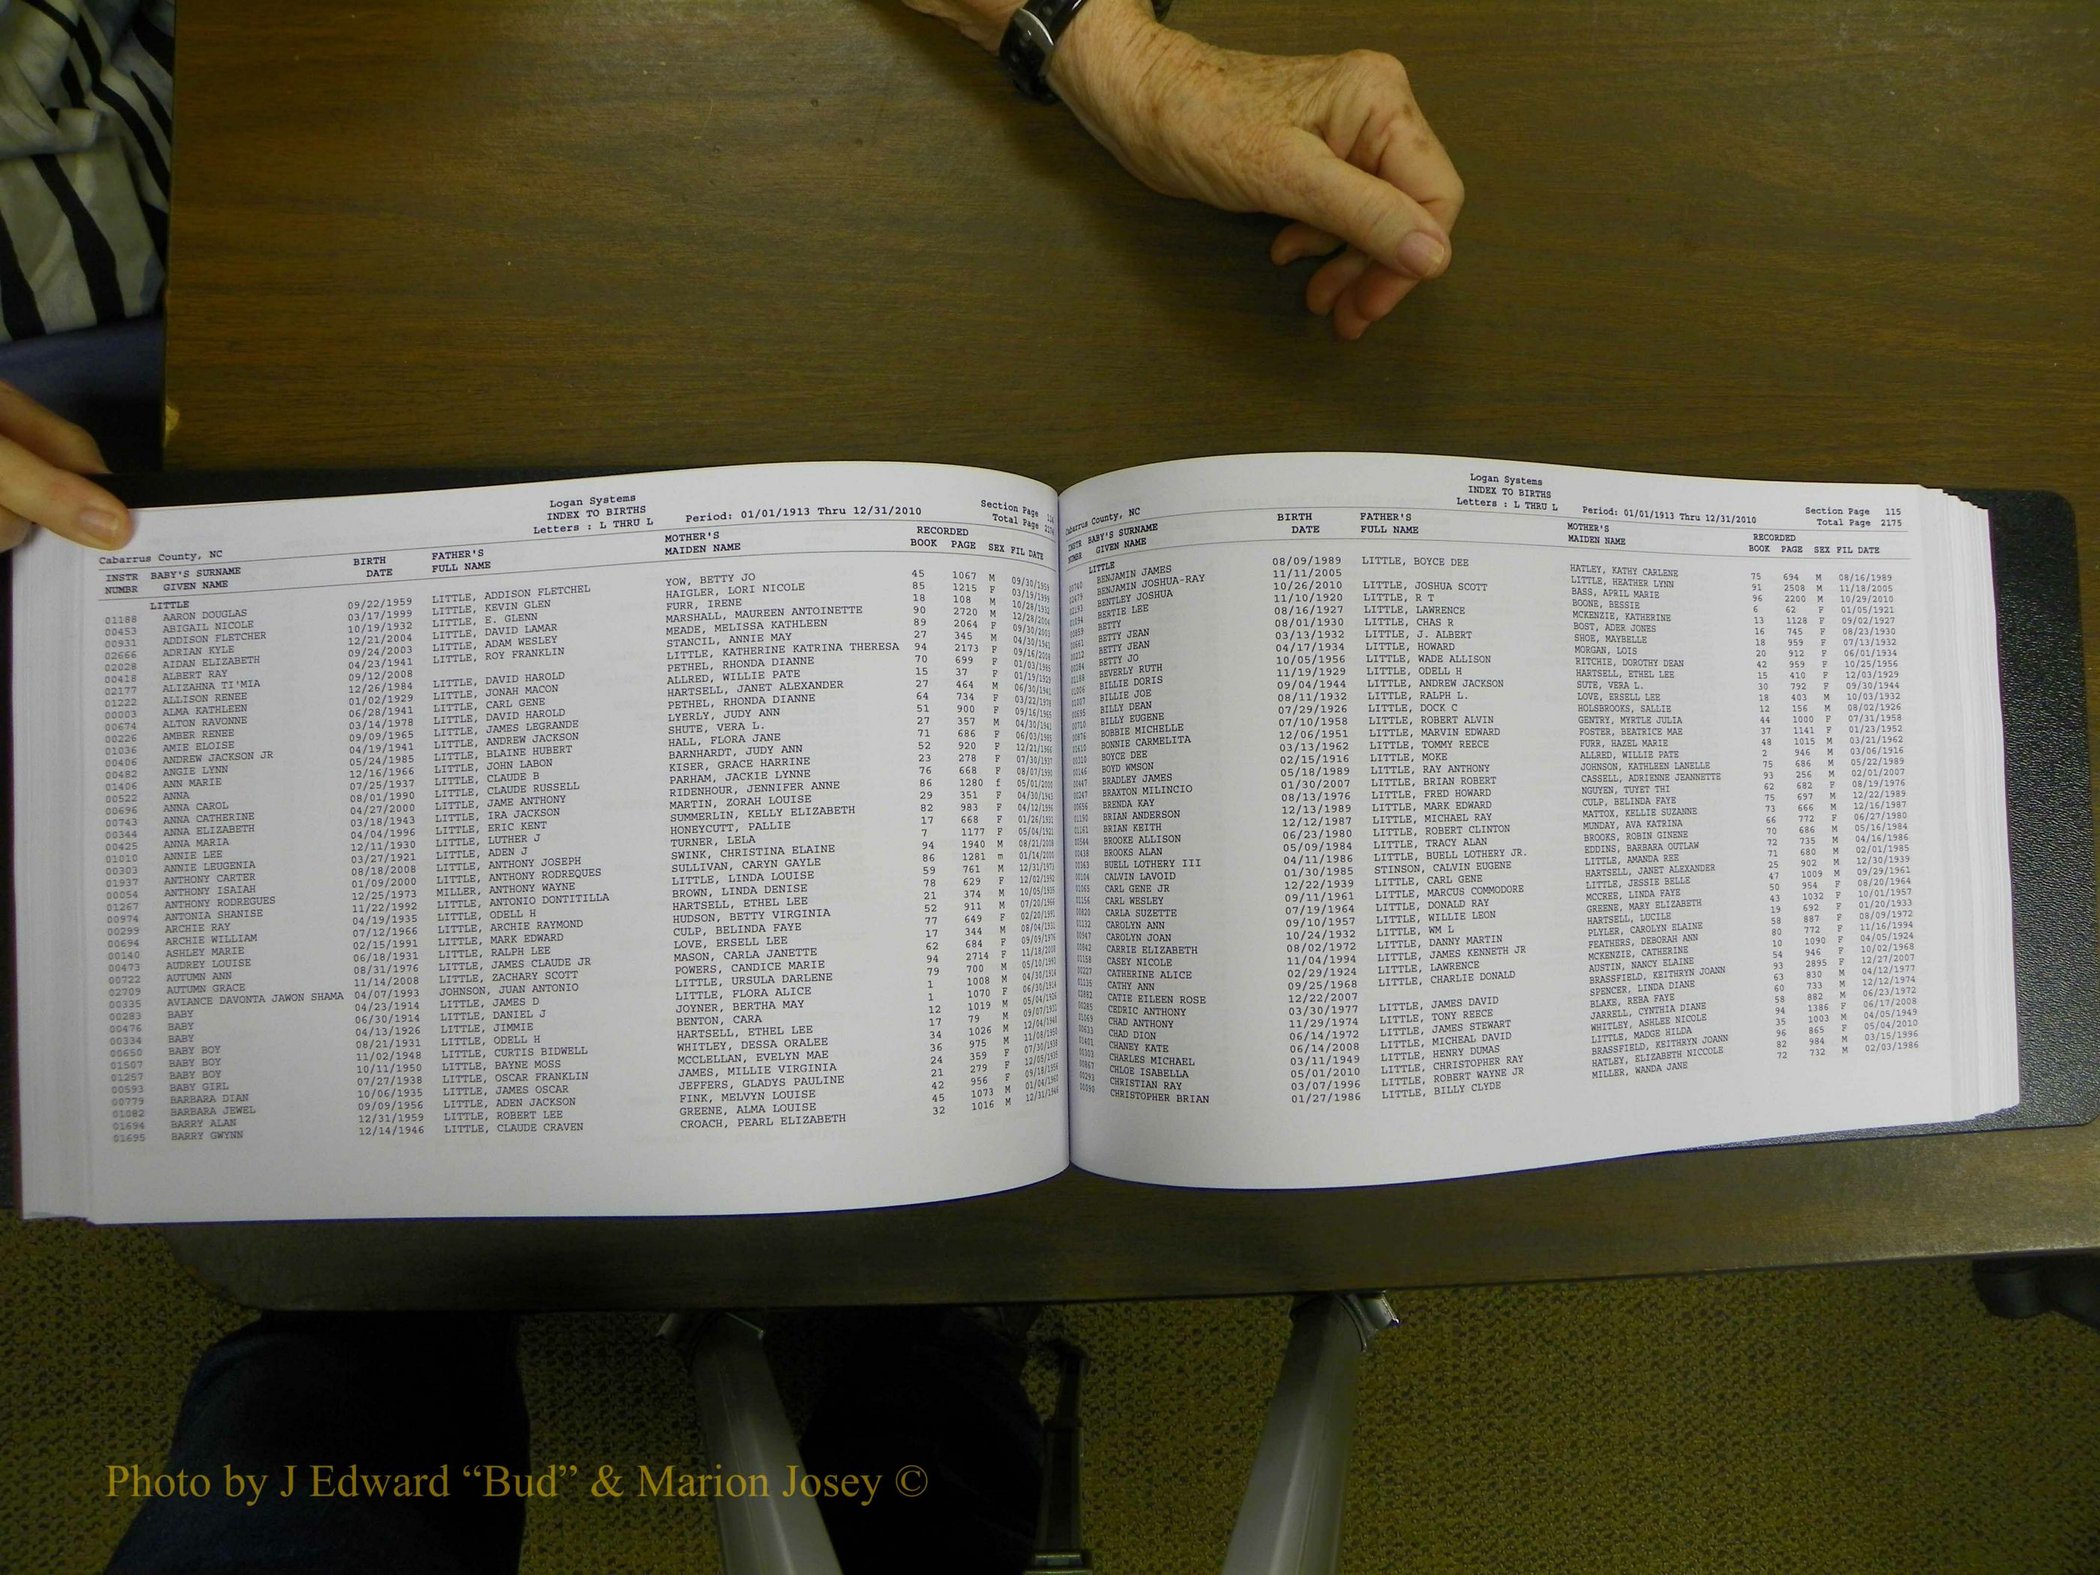 Logan Systems
INDEX TO BIRTHS
Cabarrus County, NC Letters : L THRU L Period: 01/01/1913 Thru 12/31/2010 Section Page
Total Page
INSTR BABY'S SURNAME BIRTH FATHER'S MOTHER'S RECORDED
NUMBR GIVEN NAME DATE FULL NAME MAIDEN NAME BOOK PAGE SEX FIL DATE
LITTLE
01188 AARON DOUGLAS 09/22/1959 LITTLE, ADDISON FLETCHEL YOW, BETTY JO 45 1067 M 09/30/1959
00453 ABIGAIL NICOLE 03/17/1999 LITTLE, KEVIN GLEN HAIGLER, LORI NICOLE 85 1215 F 03/19/1999
00931 ADDISON FLETCHER 10/19/1932 LITTLE, E. GLENN FURR, IRENE 18 108 M 10/28/1932
02666 ADRIAN KYLE 12/21/2004 LITTLE, DAVID LAMAR MARSHALL, MAUREEN ANTOINETTE 90 2720 M 12/28/2004
02028 AIDAN ELIZABETH 09/24/2003 LITTLE, ADAM WESLEY MEADE, MELISSA KATHLEEN 89 2064 F 09/30/2003
00418 ALBERT RAY 04/23/1941 LITTLE, ROY FRANKLIN STANCIL, ANNIE MAY 27 345 M 04/30/1941
02177 ALIZAHNA TI'MIA 09/12/2008 LITTLE, KATHERINE KATRINA THERESA 94 2173 F 09/16/2008
01222 ALLISON RENEE 12/26/1984 LITTLE, DAVID HAROLD PETHEL, RHONDA DIANNE 70 699 F 01/03/1985
00003 ALMA KATHLEEN 01/02/1929 LITTLE, JONAH MACON ALLRED, WILLIE PATE 15 37 F 01/19/1929
00674 ALTON RAVONNE 06/28/1941 LITTLE, CARL GENE HARTSELL, JANET ALEXANDER 27 464 M 06/30/1941
00226 AMBER RENEE 03/14/1978 LITTLE, DAVID HAROLD PETHEL, RHONDA DIANNE 64 734 F 03/22/1978
01036 AMIE ELOISE 09/09/1965 LITTLE, JAMES LEGRANDE LYERLY, JUDY ANN 51 900 F 09/16/1965
00406 ANDREW JACKSON JR 04/19/1941 LITTLE, ANDREW JACKSON SHUTE, VERA L. 27 357 M 04/30/1941
00482 ANGIE LYNN 05/24/1985 LITTLE, BLAINE HUBERT HALL, FLORA JANE 71 686 F 06/03/1985
01406 ANN MARIE 12/16/1966 LITTLE, JOHN LABON BARNHARDT, JUDY ANN 52 920 F 12/21/1966
00522 ANNA 07/25/1937 LITTLE, CLAUDE B KISER, GRACE HARRINE 23 278 F 07/30/1937
00696 ANNA CAROL 08/01/1990 LITTLE, CLAUDE RUSSELL PARHAM, JACKIE LYNNE 76 668 F 08/07/1990
00743 ANNA CATHERINE 04/27/2000 LITTLE, JAME ANTHONY RIDENHOUR, JENNIFER ANNE 86 1280 f 05/01/2000
00344 ANNA ELIZABETH 03/18/1943 LITTLE, IRA JACKSON MARTIN, ZORAH LOUISE 29 351 F 04/30/1943
00425 ANNA MARIA 04/04/1996 LITTLE, ERIC KENT SUMMERLIN, KELLY ELIZABETH 82 983 F 04/12/1996
01010 ANNIE LEE 12/11/1930 LITTLE, LUTHER J HONEYCUTT, PALLIE 17 668 F 01/26/1931
00303 ANNIE LEUGENIA 03/27/1921 LITTLE, ADEN J TURNER, LELA 7 1177 F 05/04/1921
01937 ANTHONY CARTER 08/18/2008 LITTLE, ANTHONY JOSEPH SWINK, CHRISTINA ELAINE 94 1940 M 08/21/2008
00054 ANTHONY ISAIAH 01/09/2000 LITTLE, ANTHONY RODREQUES SULLIVAN, CARYN GAYLE 86 1281 m 01/14/2000
01267 ANTHONY RODREGUES 12/25/1973 MILLER, ANTHONY WAYNE LITTLE, LINDA LOUISE 59 761 M 12/31/1973
00974 ANTONIA SHANISE 11/22/1992 LITTLE, ANTONIO DONTITILLA BROWN, LINDA DENISE 78 629 F 12/02/1992
00299 ARCHIE RAY 04/19/1935 LITTLE, ODELL H HARTSELL, ETHEL LEE 21 374 M 10/05/1935
00694 ARCHIE WILLIAM 07/12/1966 LITTLE, ARCHIE RAYMOND HUDSON, BETTY VIRGINIA 52 911 M 07/20/1966
00140 ASHLEY MARIE 02/15/1991 LITTLE, MARK EDWARD CULP, BELINDA FAYE 77 649 F 02/20/1991
00473 AUDREY LOUISE 06/18/1931 LITTLE, RALPH LEE LOVE, ERSELL LEE 17 344 M 08/04/1931
00722 AUTUMN ANN 08/31/1976 LITTLE, JAMES CLAUDE JR MASON, CARLA JANETTE 62 684 F 09/09/1976
02709 AUTUMN GRACE 11/14/2008 LITTLE, ZACHARY SCOTT POWERS, CANDICE MARIE 94 2714 F 11/18/2008
00335 AVIANCE DAVONTA JAWON SHAMA 04/07/1993 JOHNSON, JUAN ANTONIO LITTLE, URSULA DARLENE 79 700 M 05/10/1993
00283 BABY 04/23/1914 LITTLE, JAMES D LITTLE, FLORA ALICE 1 1008 M 04/30/1914
00476 BABY 06/30/1914 LITTLE, DANIEL J JOYNER, BERTHA MAY 1 1070 F 06/30/1914
00334 BABY 04/13/1926 LITTLE, JIMMIE BENTON, CARA 12 1019 M 05/04/1926
00650 BABY BOY 08/21/1931 LITTLE, ODELL H HARTSELL, ETHEL LEE 17 79 M 09/07/1931
01507 BABY BOY 11/02/1948 LITTLE, CURTIS BIDWELL WHITLEY, DESSA ORALEE 34 1026 M 12/04/1948
01257 BABY BOY 10/11/1950 LITTLE, BAYNE MOSS MCCLELLAN, EVELYN MAE 36 975 M 11/08/1950
00593 BABY GIRL 07/27/1938 LITTLE, OSCAR FRANKLIN JAMES, MILLIE VIRGINIA 24 359 F 07/30/1938
00779 BARBARA DIAN 10/06/1935 LITTLE, JAMES OSCAR JEFFERS, GLADYS PAULINE 21 279 F 12/05/1935
01082 BARBARA JEWEL 09/09/1956 LITTLE, ADEN JACKSON FINK, MELVYN LOUISE 42 956 F 09/18/1956
01694 BARRY ALAN 12/31/1959 LITTLE, ROBERT LEE GREENE, ALMA LOUISE 45 1073 M 01/04/1960
01695 BARRY GWYNN 12/14/1946 LITTLE, CLAUDE CRAVEN CROACH, PEARL ELIZABETH 32 1016 M 12/31/1946
Logan Systems
INDEX TO BIRTHS
Cabarrus County, NC Letters : L THRU L Period: 01/01/1913 Thru 12/31/2010 Section Page 115
Total Page 2175
INSTR BABY'S SURNAME BIRTH FATHER'S MOTHER'S RECORDED
NUMBR GIVEN NAME DATE FULL NAME MAIDEN NAME BOOK PAGE SEX FIL DATE
LITTLE
00740 BENJAMIN JAMES 08/09/1989 LITTLE, BOYCE DEE HATLEY, KATHY CARLENE 75 694 M 08/16/1989
02479 BENJAMIN JOSHUA-RAY 11/11/2005 LITTLE, HEATHER LYNN 91 2508 M 11/18/2005
02193 BENTLEY JOSHUA 10/26/2010 LITTLE, JOSHUA SCOTT BASS, APRIL MARIE 96 2200 M 10/29/2010
01094 BERTIE LEE 11/10/1920 LITTLE, R T BOONE, BESSIE 6 62 F 01/05/1921
00859 BETTY 08/16/1927 LITTLE, LAWRENCE MCKENZIE, KATHERINE 13 1128 F 09/02/1927
00661 BETTY JEAN 08/01/1930 LITTLE, CHAS R BOST, ADER JONES 16 745 F 08/23/1930
00212 BETTY JEAN 03/13/1932 LITTLE, J. ALBERT SHOE, MAYBELLE 18 959 F 07/13/1932
00284 BETTY JO 04/17/1934 LITTLE, HOWARD MORGAN, LOIS 20 912 F 06/01/1934
01188 BEVERLY RUTH 10/05/1956 LITTLE, WADE ALLISON RITCHIE, DOROTHY DEAN 42 959 F 10/25/1956
01006 BILLIE DORIS 11/19/1929 LITTLE, ODELL H HARTSELL, ETHEL LEE 15 410 F 12/03/1929
01007 BILLIE JOE 09/04/1944 LITTLE, ANDREW JACKSON SUTE, VERA L. 30 792 F 09/30/1944
00695 BILLY DEAN 08/11/1932 LITTLE, RALPH L. LOVE, ERSELL LEE 18 403 M 10/03/1932
00710 BILLY EUGENE 07/29/1926 LITTLE, DOCK C HOLSBROOKS, SALLIE 12 156 M 08/02/1926
00876 BOBBIE MICHELLE 07/10/1958 LITTLE, ROBERT ALVIN GENTRY, MYRTLE JULIA 44 1000 F 07/31/1958
01610 BONNIE CARMELITA 12/06/1951 LITTLE, MARVIN EDWARD FOSTER, BEATRICE MAE 37 1141 F 01/23/1952
00310 BOYCE DEE 03/13/1962 LITTLE, TOMMY REECE FURR, HAZEL MARIE 48 1015 M 03/21/1962
00146 BOYD WMSON 02/15/1916 LITTLE, MOKE ALLRED, WILLIE PATE 2 946 M 03/06/1916
00447 BRADLEY JAMES 05/18/1989 LITTLE, RAY ANTHONY JOHNSON, KATHLEEN LANELLE 75 686 M 05/22/1989
00247 BRAXTON MILINCIO 01/30/2007 LITTLE, BRIAN ROBERT CASSELL, ADRIENNE JEANNETTE 93 256 M 02/01/2007
00656 BRENDA KAY 08/13/1976 LITTLE, FRED HOWARD NGUYEN, TUYET THI 62 682 F 08/19/1976
01190 BRIAN ANDERSON 12/13/1989 LITTLE, MARK EDWARD CULP, BELINDA FAYE 75 697 M 12/22/1989
01161 BRIAN KEITH 12/12/1987 LITTLE, MICHAEL RAY MATTOX, KELLIE SUZANNE 73 666 M 12/16/1987
00544 BROOKE ALLISON 06/23/1980 LITTLE, ROBERT CLINTON MUNDAY, AVA KATRINA 66 772 F 06/27/1980
00438 BROOKS ALAN 05/09/1984 LITTLE, TRACY ALAN BROOKS, ROBIN GINENE 70 686 M 05/16/1984
00363 BUELL LOTHERY III 04/11/1986 LITTLE, BUELL LOTHERY JR. EDDINS, BARBARA OUTLAW 72 735 M 04/16/1986
00104 CALVIN LAVOID 01/30/1985 STINSON, CALVIN EUGENE LITTLE, AMANDA REE 71 680 M 02/01/1985
01065 CARL GENE JR 12/22/1939 LITTLE, CARL GENE HARTSELL, JANET ALEXANDER 25 902 M 12/30/1939
01156 CARL WESLEY 09/11/1961 LITTLE, MARCUS COMMODORE LITTLE, JESSIE BELLE 47 1009 M 09/29/1961
00820 CARLA SUZETTE 07/19/1964 LITTLE, DONALD RAY MCCREE, LINDA FAYE 50 954 F 08/20/1964
01132 CAROLYN ANN 09/10/1957 LITTLE, WILLIE LEON GREENE, MARY ELIZABETH 43 1032 F 10/01/1957
00947 CAROLYN JOAN 10/24/1932 LITTLE, WM L HARTSELL, LUCILE 19 692 F 01/20/1933
00842 CARRIE ELIZABETH 08/02/1972 LITTLE, DANNY MARTIN PLYLER, CAROLYN ELAINE 58 887 F 08/09/1972
01158 CASEY NICOLE 11/04/1994 LITTLE, JAMES KENNETH JR FEATHERS, DEBORAH ANN 80 772 F 11/16/1994
00227 CATHERINE ALICE 02/29/1924 LITTLE, LAWRENCE MCKENZIE, CATHERINE 10 1090 F 04/05/1924
01135 CATHY ANN 09/25/1968 LITTLE, CHARLIE DONALD AUSTIN, NANCY ELAINE 54 946 F 10/02/1968
02882 CATIE EILEEN ROSE 12/22/2007 BRASSFIELD, KEITHRYN JOANN 93 2895 F 12/27/2007
00285 CEDRIC ANTHONY 03/30/1977 LITTLE, JAMES DAVID SPENCER, LINDA DIANE 63 830 M 04/12/1977
01069 CHAD ANTHONY 11/29/1974 LITTLE, TONY REECE BLAKE, REBA FAYE 60 733 M 12/12/1974
00633 CHAD DION 06/14/1972 LITTLE, JAMES STEWART JARRELL, CYNTHIA DIANE 58 882 M 06/23/1972
01401 CHANEY KATE 06/14/2008 LITTLE, MICHEAL DAVID WHITLEY, ASHLEE NICOLE 94 1386 F 06/17/2008
00303 CHARLES MICHAEL 03/11/1949 LITTLE, HENRY DUMAS LITTLE, MADGE HILDA 35 1003 M 04/05/1949
00867 CHLOE ISABELLA 05/01/2010 LITTLE, CHRISTOPHER RAY BRASSFIELD, KEITHRYN JOANN 96 865 F 05/04/2010
00293 CHRISTIAN RAY 03/07/1996 LITTLE, ROBERT WAYNE JR HATLEY, ELIZABETH NICCOLE 82 984 M 03/15/1996
00090 CHRISTOPHER BRIAN 01/27/1986 LITTLE, BILLY CLYDE MILLER, WANDA JANE 72 732 M 02/03/1986
Photo by J Edward “Bud” & Marion Josey ©